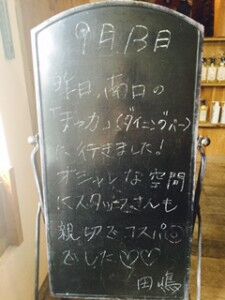 9月13日
昨日、南口の
「まっカ」(ダイニングバー)
に行きました！
オシャレな空間
にスタッフさんも
親切でコスパ◎
でした♡♡
田嶋